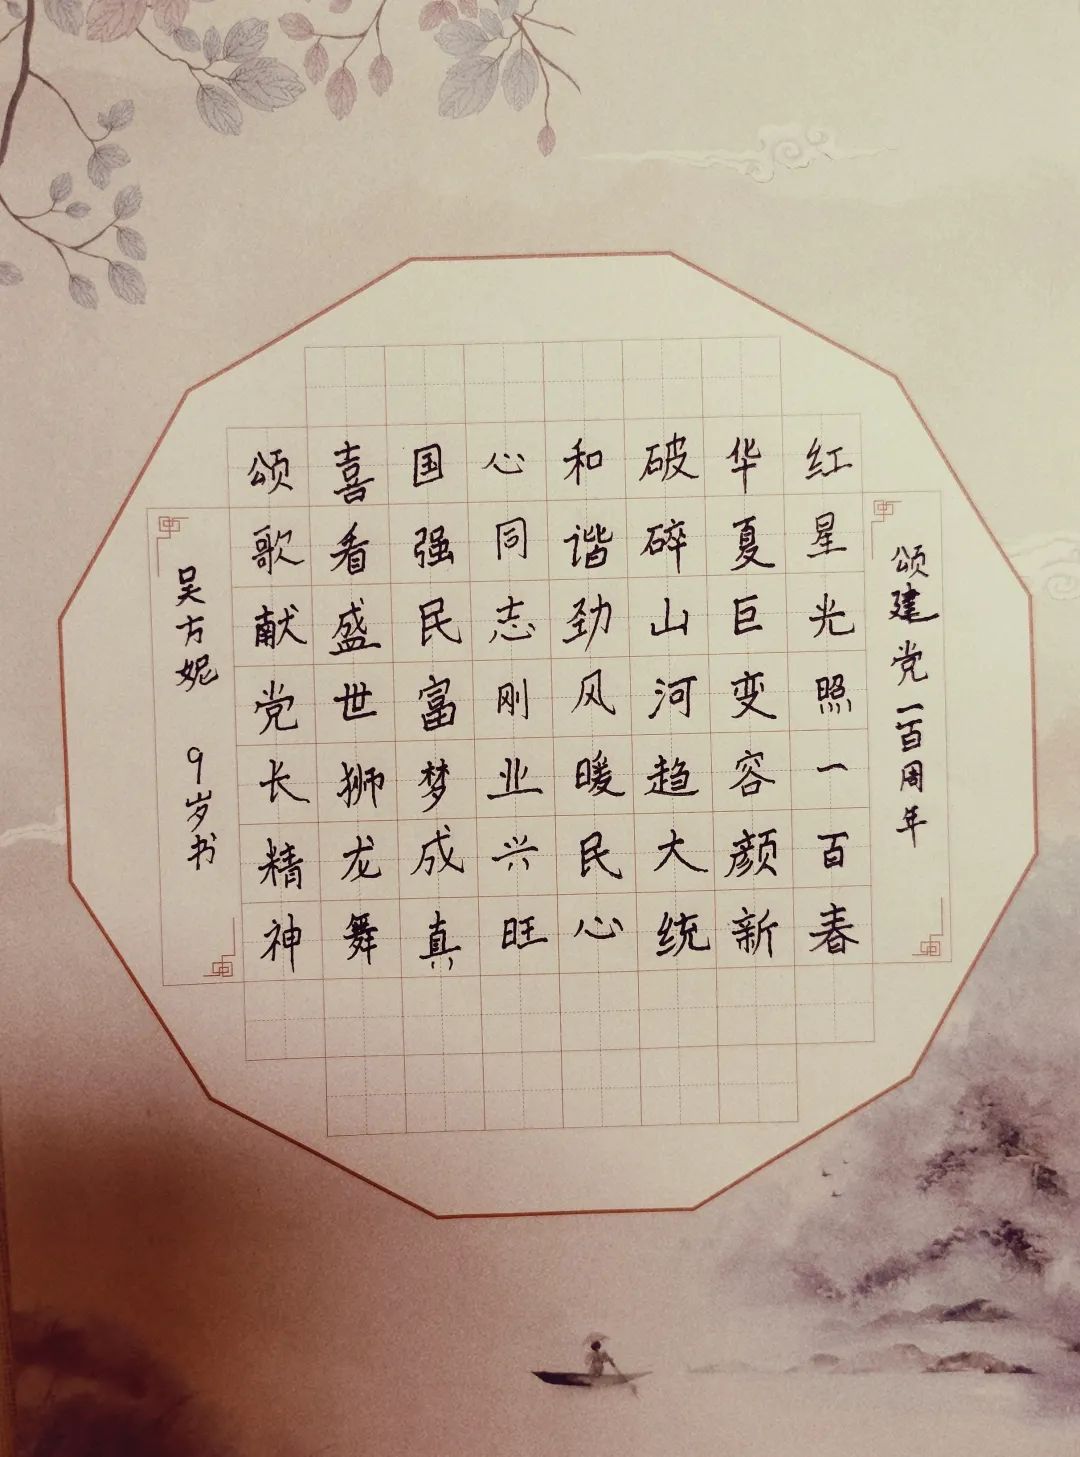 颂建党一百周年
红星光照一百春
华夏巨变容颜新
破碎山河趋大统
和谐劲风暖民心
心同志刚业兴旺
国强民富梦成真
喜看盛世狮龙舞
颂歌献党长精神
吴方妮 9岁书